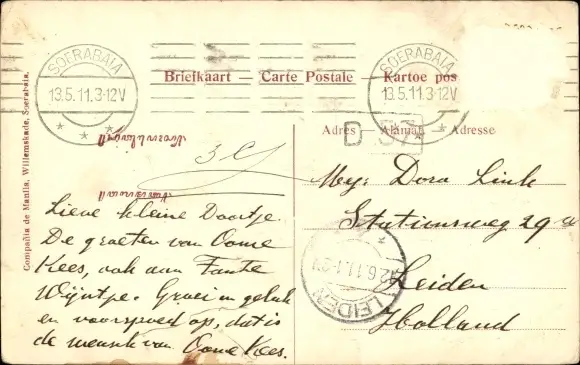 SOERABAIA
13.5.11.3-12V
Briefkaart — Carte Postale — Kartoe pos
SOERABAIA
13.5.11.3-12V
Adres — Alamat — Adresse
D 37
Compañia de Manila, Willemskade, Soerabaia.
Lieve kleine Doortje.
De groeten van Oome
Kees, ook aan Tante
Wijntje. Groei in geluk
en voorspoed op, dat is
de wensch van Oome Kees.
Mej: Dora Link
Stationsweg 29a
Leiden
Holland
LEIDEN
12.6.11.1-2V